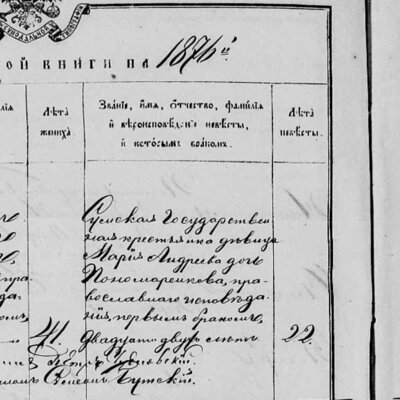 ОЙ КНИГИ НА 1876й
ЛѢТА
ЖЕНИХА.
ЗВАНІЕ, ИМЯ, ОТЧЕСТВО, ФАМИЛІЯ
И ВѢРОИСПОВѢДАНІЕ НЕВѢСТЫ,
И КОТОРЫМЪ БРАКОМЪ.
ЛѢТА
НЕВѢСТЫ.
Сумская Государствен
ная крестьянка дѣвица
Марія Андреева дочь
Пономаренкова, пра-
вославнаго исповѣда
нія, первымъ бракомъ,
41. Двадцати двухъ лѣтъ 22.
Петръ
Симеонъ Бутскій.